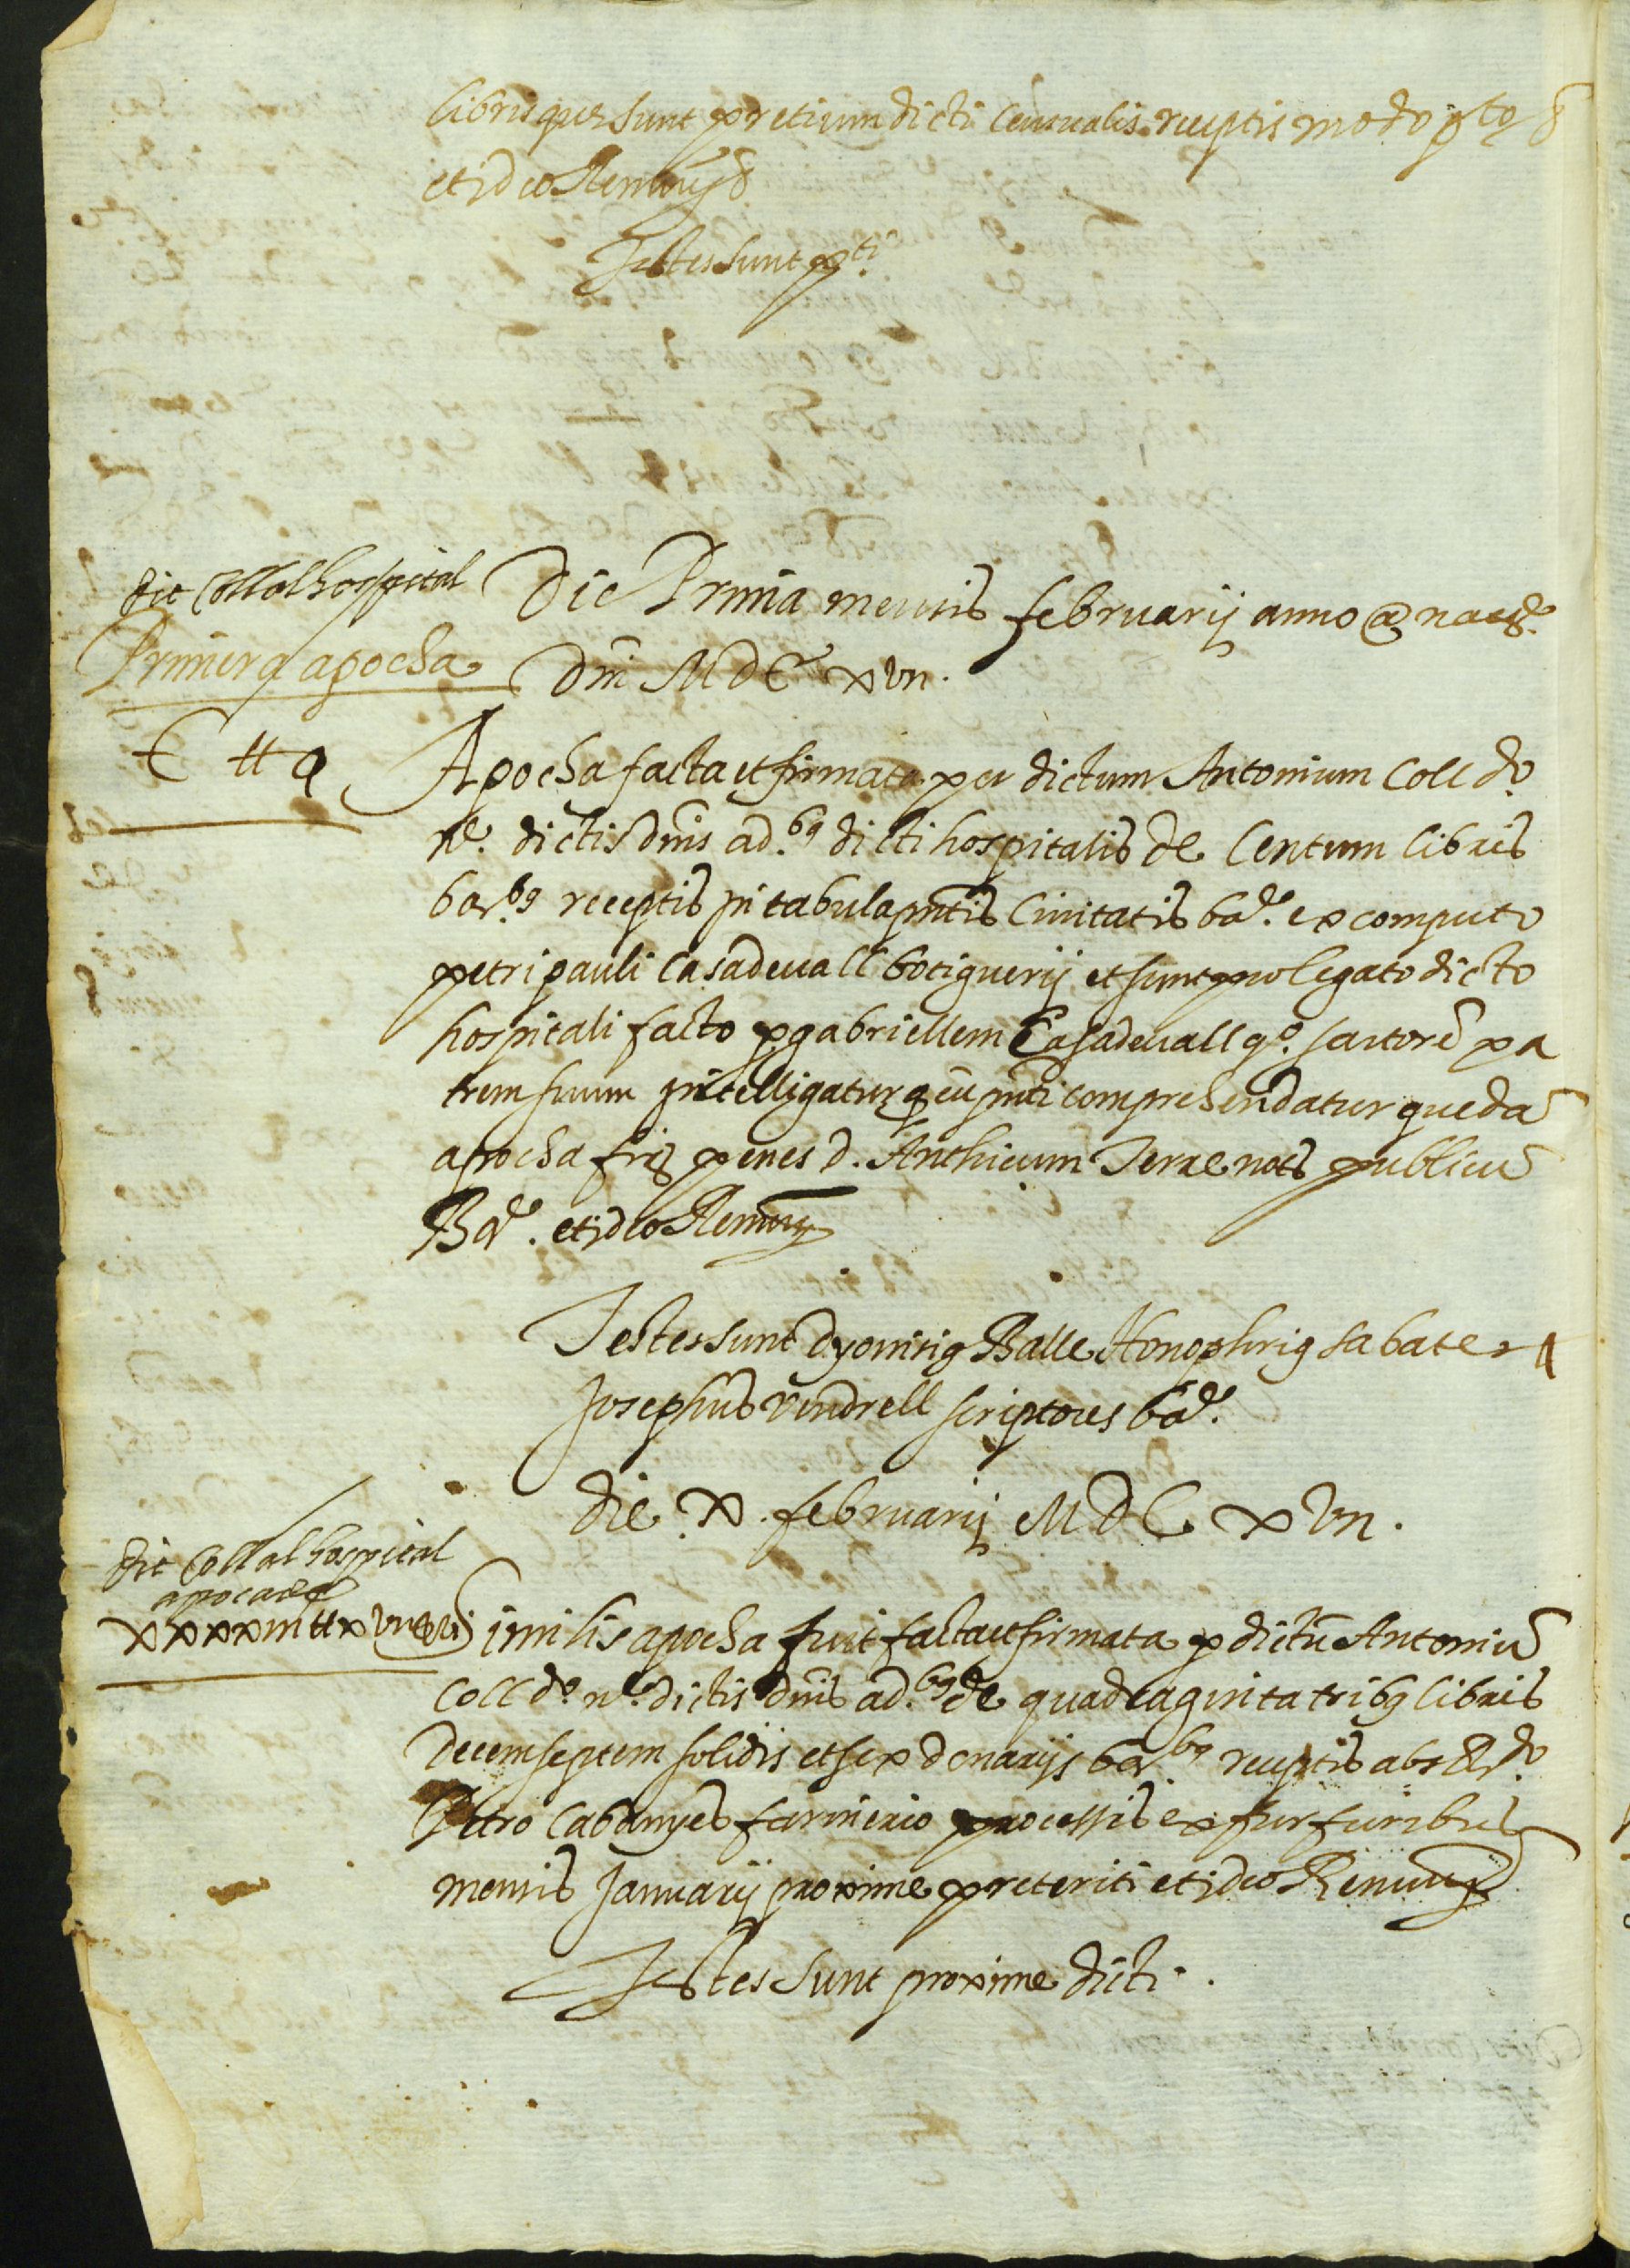 libris que sunt pretium dicti censualis receptis modo pto &
et ideo Renun &
Testes sunt pti
dit Coll al hospital
Primera apocha
C ll
Die Prima mensis februarij anno @ nae
Dni MdC xvii.
Apocha facta et firmata per dictum Antonium Coll do
ne. dictis dnis ad.bs dicti hospitalis de Centum libris
bar.bs receptis in tabula pntis Civitatis bar. ex computo
petri pauli Casadevall botiguerij et sunt pro legato dicto
hospitali facto p gabrielem Casadevall qo. sartore pa
trem suum intelligatur cu pnti comprehendatur queda
apocha penes d. Anthicum Serra nots publicu
Bar. et ideo Renun
Testes sunt dyonisius Balle Honophrius sabater
Josephus vendrell scriptores bar.
die x februarij MdC xvii.
dit Coll al hospital
apoca de
xxxxiii ll xvii s vi
Similis apocha fuit facta et firmata p dictu Antoniu
Coll do. ne. dictis dnis ad.bs de quadraginta tribus libris
decem septem solidis et sex denarijs bar.bs receptis abs do
Petro Cabanyes farinerio processis ex furfuribus
mensis Januarij proxime preteriti et ideo Renun
Testes sunt proxime dicti.